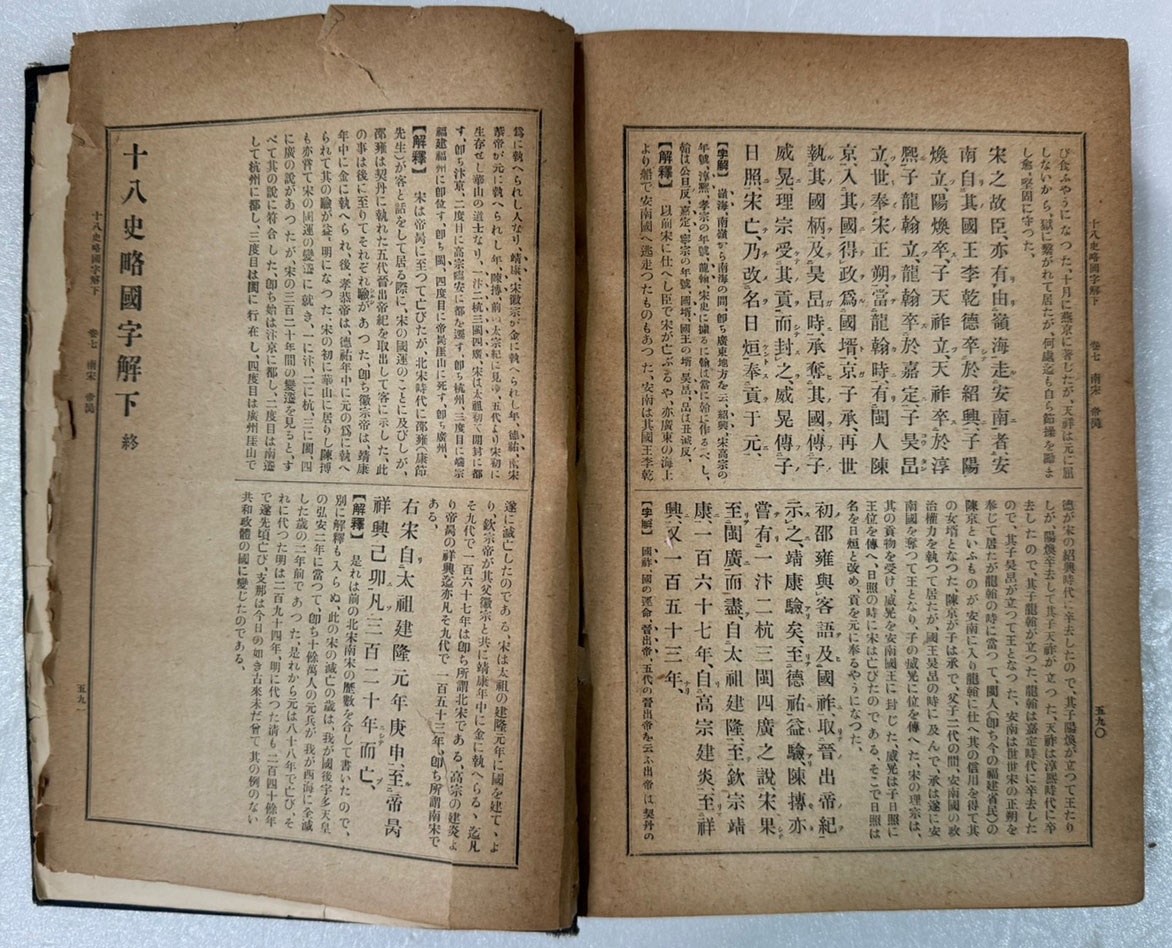 十八史略國字解下　卷七　南宋　帝昺
五九〇
び食ふやうになつた、十月に燕京に著したが、天祥は元に屈
しないから、獄に繋がれて居たが、何處迄も自ら節操を勵ま
し奮、堅固に守つた。
宋之故臣、亦有由嶺海走安南者、安
南自其國王李乾德卒於紹興、子陽
煥立、陽煥卒、子天祚立、天祚卒於淳
熙、子龍翰立、龍翰卒於嘉定、子昊旵
立、世奉宋正朔、當龍翰時、有閩人陳
京、入其國得政爲國壻、京子承、再世
執其國柄、及昊旵時、承奪其國、傳子
威晃、理宗受其貢、而封之、威晃傳子
日照、宋亡、乃改名日烜、奉貢于元、
【字解】　嶺海、南嶺から南海の間、卽ち廣東地方を云、紹興、宋高宗の
年號、淳熙、孝宗の年號、龍翰、宋史に據るに翰は當に䎐に作るべし、
䎐は公旦反、嘉定、寧宗の年號、國壻、國王の壻、昊旵、旵は丑減反、
【解釋】　以前宋に仕へし臣で宋が亡ぶるや、亦廣東の海上
より船で安南國へ逃走つたものもあつた、安南は其國王李乾
德が宋の紹興時代に卒去したので、其子陽煥が立つて王たり
しが、陽煥卒去して其子天祚が立つた、天祚は淳熙時代に卒
去したので、其子龍翰が立つた、龍翰は嘉定時代に卒去した
ので、其子昊旵が立つて王となつた、安南は世世宋の正朔を
奉じて居たが龍翰の時に當つて、閩人(卽ち今の福建省民)の
陳京といふものが安南に入り龍翰に仕へ其の信用を得て其
の女壻となつた、陳京が子は承で、父子二代の間、安南國の政
治權力を執つて居たが、國王昊旵の時に及んで、承は遂に安
南國を奪つて王となり、子の威晃に位を傳へた、宋の理宗は、
其の貢物を受け、威晃を安南國王に封じた、威晃は子日照に
王位を傳へ、日照の時に宋は亡びたのである、そこで日照は
名を日烜と改め、貢を元に奉るやうになつた。
初邵雍與客語及國祚、取晉出帝紀
示之、靖康驗矣、至德祐、益驗、陳摶亦
嘗有一汴二杭三閩四廣之說、宋果
至閩廣而盡、自太祖建隆、至欽宗靖
康、一百六十七年、自高宗建炎、至祥
興、又一百五十三年、
【字解】　國祚、國の運命、晉出帝、五代の晉出帝を云ふ出帝は契丹の
爲に執へられし人なり、靖康、宋徽宗が金に執へられし年、德祐、南宋
恭帝が元に執へられし年、陳摶、前の太宗紀に見ゆ、五代より宋初に
生存せし華山の道士なり、一汴二杭三閩四廣、宋は太祖初く開封に都
す、卽ち汴京、二度目に高宗臨安に都を遷す、卽ち杭州、三度目に端宗
福建福州に卽位す、卽ち閩、四度目に帝昺崖山に死す、卽ち廣州、
【解釋】　宋は帝昺に至つて亡びたが、北宋時代に邵雍(康節
先生)が客と話をして居る際に、宋の國運のことに及びしが、
邵雍は契丹に執れた五代晉出帝紀を取出して客に示した、此
の事は後に至りてそれぞれ驗があつた、卽ち徽宗帝は、靖康
年中に金に執へられ後、孝恭帝は、德祐年中に元の爲に執へ
られて其の驗が益〻明になつた、宋の初に華山に居りし陳摶
も亦嘗て宋の國運の變遷に就き、一に汴、二に杭、三に閩、四
に廣の說があつたが、宋の三百二十年間の變遷を見ると、す
べて其の說に符合した、卽ち始は汴京に都し、二度目は南遷
して杭州に都し、三度目は閩に行在し、四度目は廣州崖山で
遂に滅亡したのである、宋は太祖の建隆元年に國を建て、よ
り、欽宗帝が其父徽宗と共に靖康年中に金に執へらるゝ迄凡
そ九代で一百六十七年は卽ち所謂北宋である、高宗の建炎よ
り帝昺の祥興迄亦凡そ九代で一百五十三年、卽ち所謂南宋で
ある、
右宋自太祖建隆元年庚申、至帝昺
祥興己卯、凡三百二十年而亡、
【解釋】　是れは前の北宋南宋の歷數を合して書いたので、
別に解釋も入らぬ、此の宋の滅亡の歲は、我が國後宇多天皇
の弘安二年に當つて、卽ち十餘萬人の元兵が我が西海に全滅
した歲の二年前であつた、是れから元は八十八年で亡び、そ
れに代つた明は二百九十四年、明に代つた淸も二百四十餘年
で遂先頃亡び、支那は今日の如き古來未だ曾て其の例のない
共和政體の國に變じたのである、
十八史略國字解下　終
十八史略國字解下　卷七　南宋　帝昺
五九一